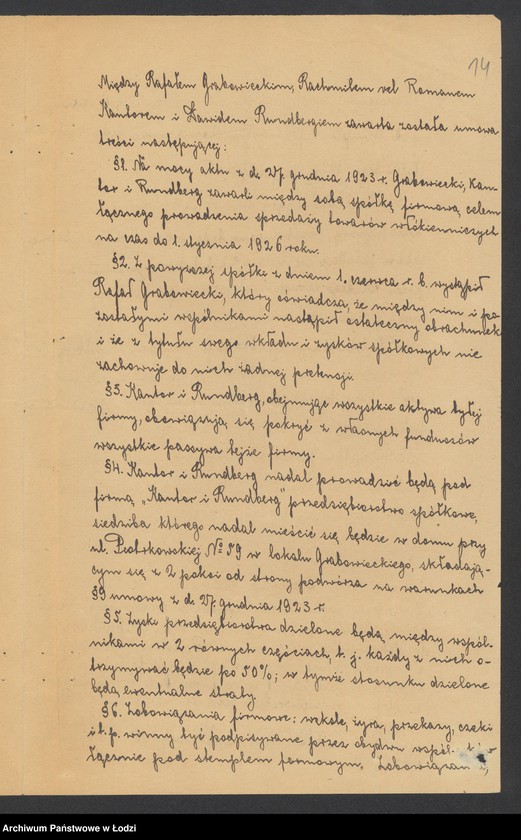 14
Między Rafałem Grabowieckim, Rachmilem vel Romanem
Kantorem i Dawidem Rundbergiem zawarta została umowa
treści następującej:
§1. Na mocy aktu z d. 27. grudnia 1923 r. Grabowiecki, Kan-
tor i Rundberg zawarli między sobą spółkę firmową celem
łącznego prowadzenia sprzedaży towarów włókienniczych
na czas do 1. stycznia 1926 roku.
§2. Z powyższej spółki z dniem 1. czerwca r. b. wystąpił
Rafał Grabowiecki, który oświadcza, że między nim i po-
zostałymi wspólnikami nastąpił ostateczny obrachunek
i że z tytułu swego wkładu i zysków spółkowych nie
zachowuje do nich żadnej pretensji.
§3. Kantor i Rundberg, obejmując wszystkie aktywa byłej
firmy, obowiązują się pokryć z własnych funduszów
wszystkie passywa tejże firmy.
§4. Kantor i Rundberg nadal prowadzić będą pod
firmą „Kantor i Rundberg" przedsiębiorstwo spółkowe,
siedziba którego nadal mieścić się będzie w domu przy
ul. Piotrkowskiej № 59 w lokalu Grabowieckiego, składają-
cym się z 2 pokoi od strony podwórza na warunkach
§9 umowy z d. 27. grudnia 1923 r.
§5. Zyski przedsiębiorstwa dzielone będą między wspól-
nikami w 2 równych częściach, t. j. każdy z nich o-
trzymywać będzie po 50%; w tymże stosunku dzielone
będą ewentualne straty.
§6. Zobowiązania firmowe: weksle, żyra, przekazy, czeki
i t. p. winny być podpisywane przez obydwu
łącznie pod stemplem firmowym.
Archiwum Państwowe w Łodzi